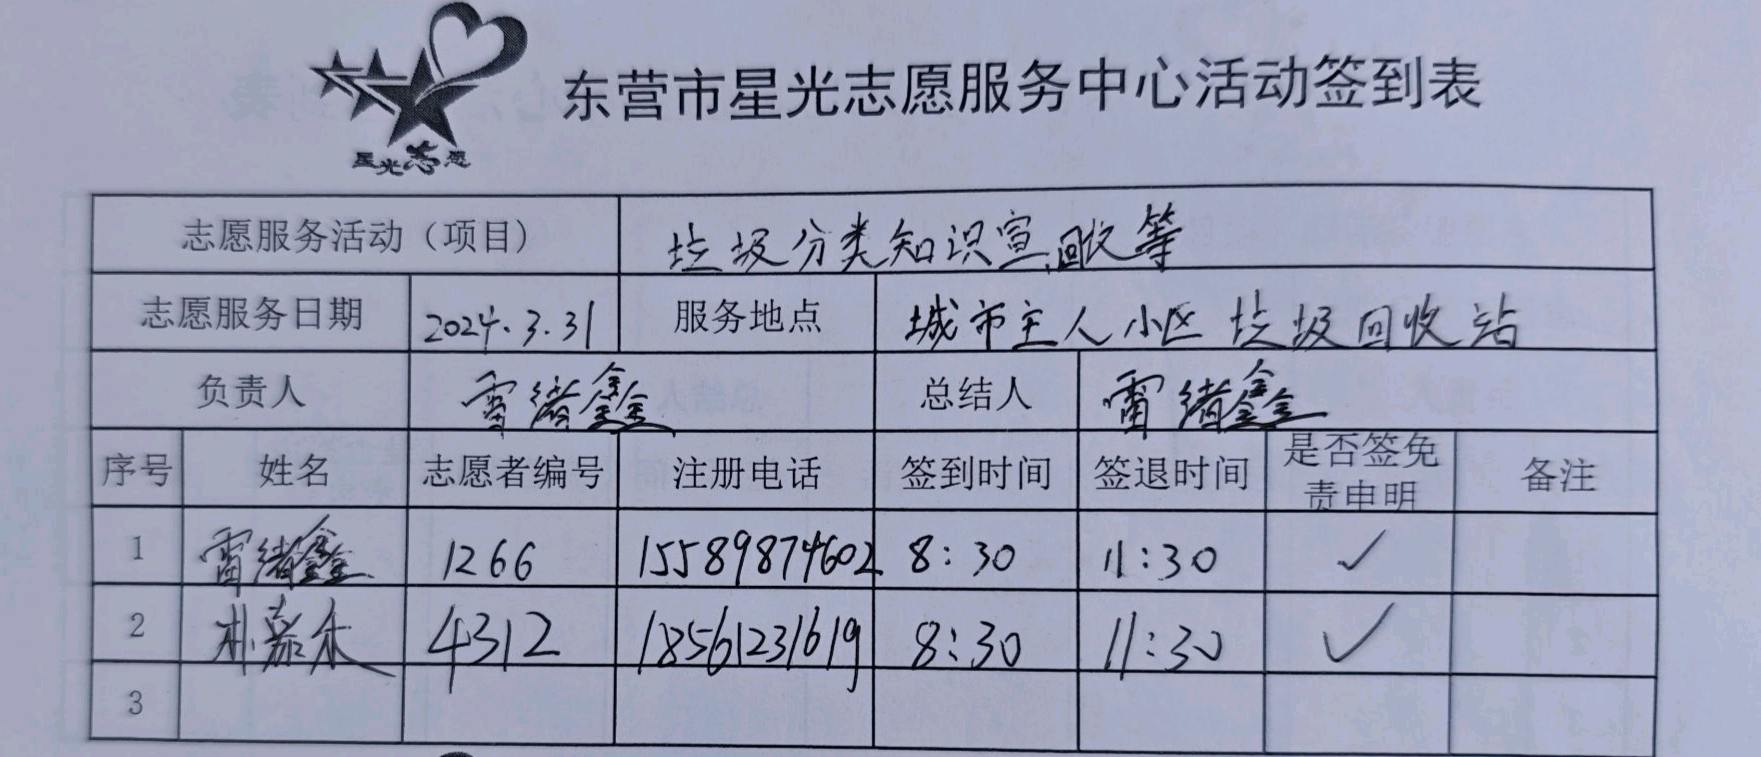 星光志愿
东营市星光志愿服务中心活动签到表
志愿服务活动（项目） 垃圾分类知识宣,回收等
志愿服务日期 2024.3.31 服务地点 城市主人小区垃圾回收站
负责人 雷绪鑫 总结人 雷绪鑫
序号 姓名 志愿者编号 注册电话 签到时间 签退时间 是否签免责申明 备注
1 雷绪鑫 1266 15589874602 8:30 11:30 ✓
2 朴嘉禾 4312 18561231619 8:30 11:30 ✓
3